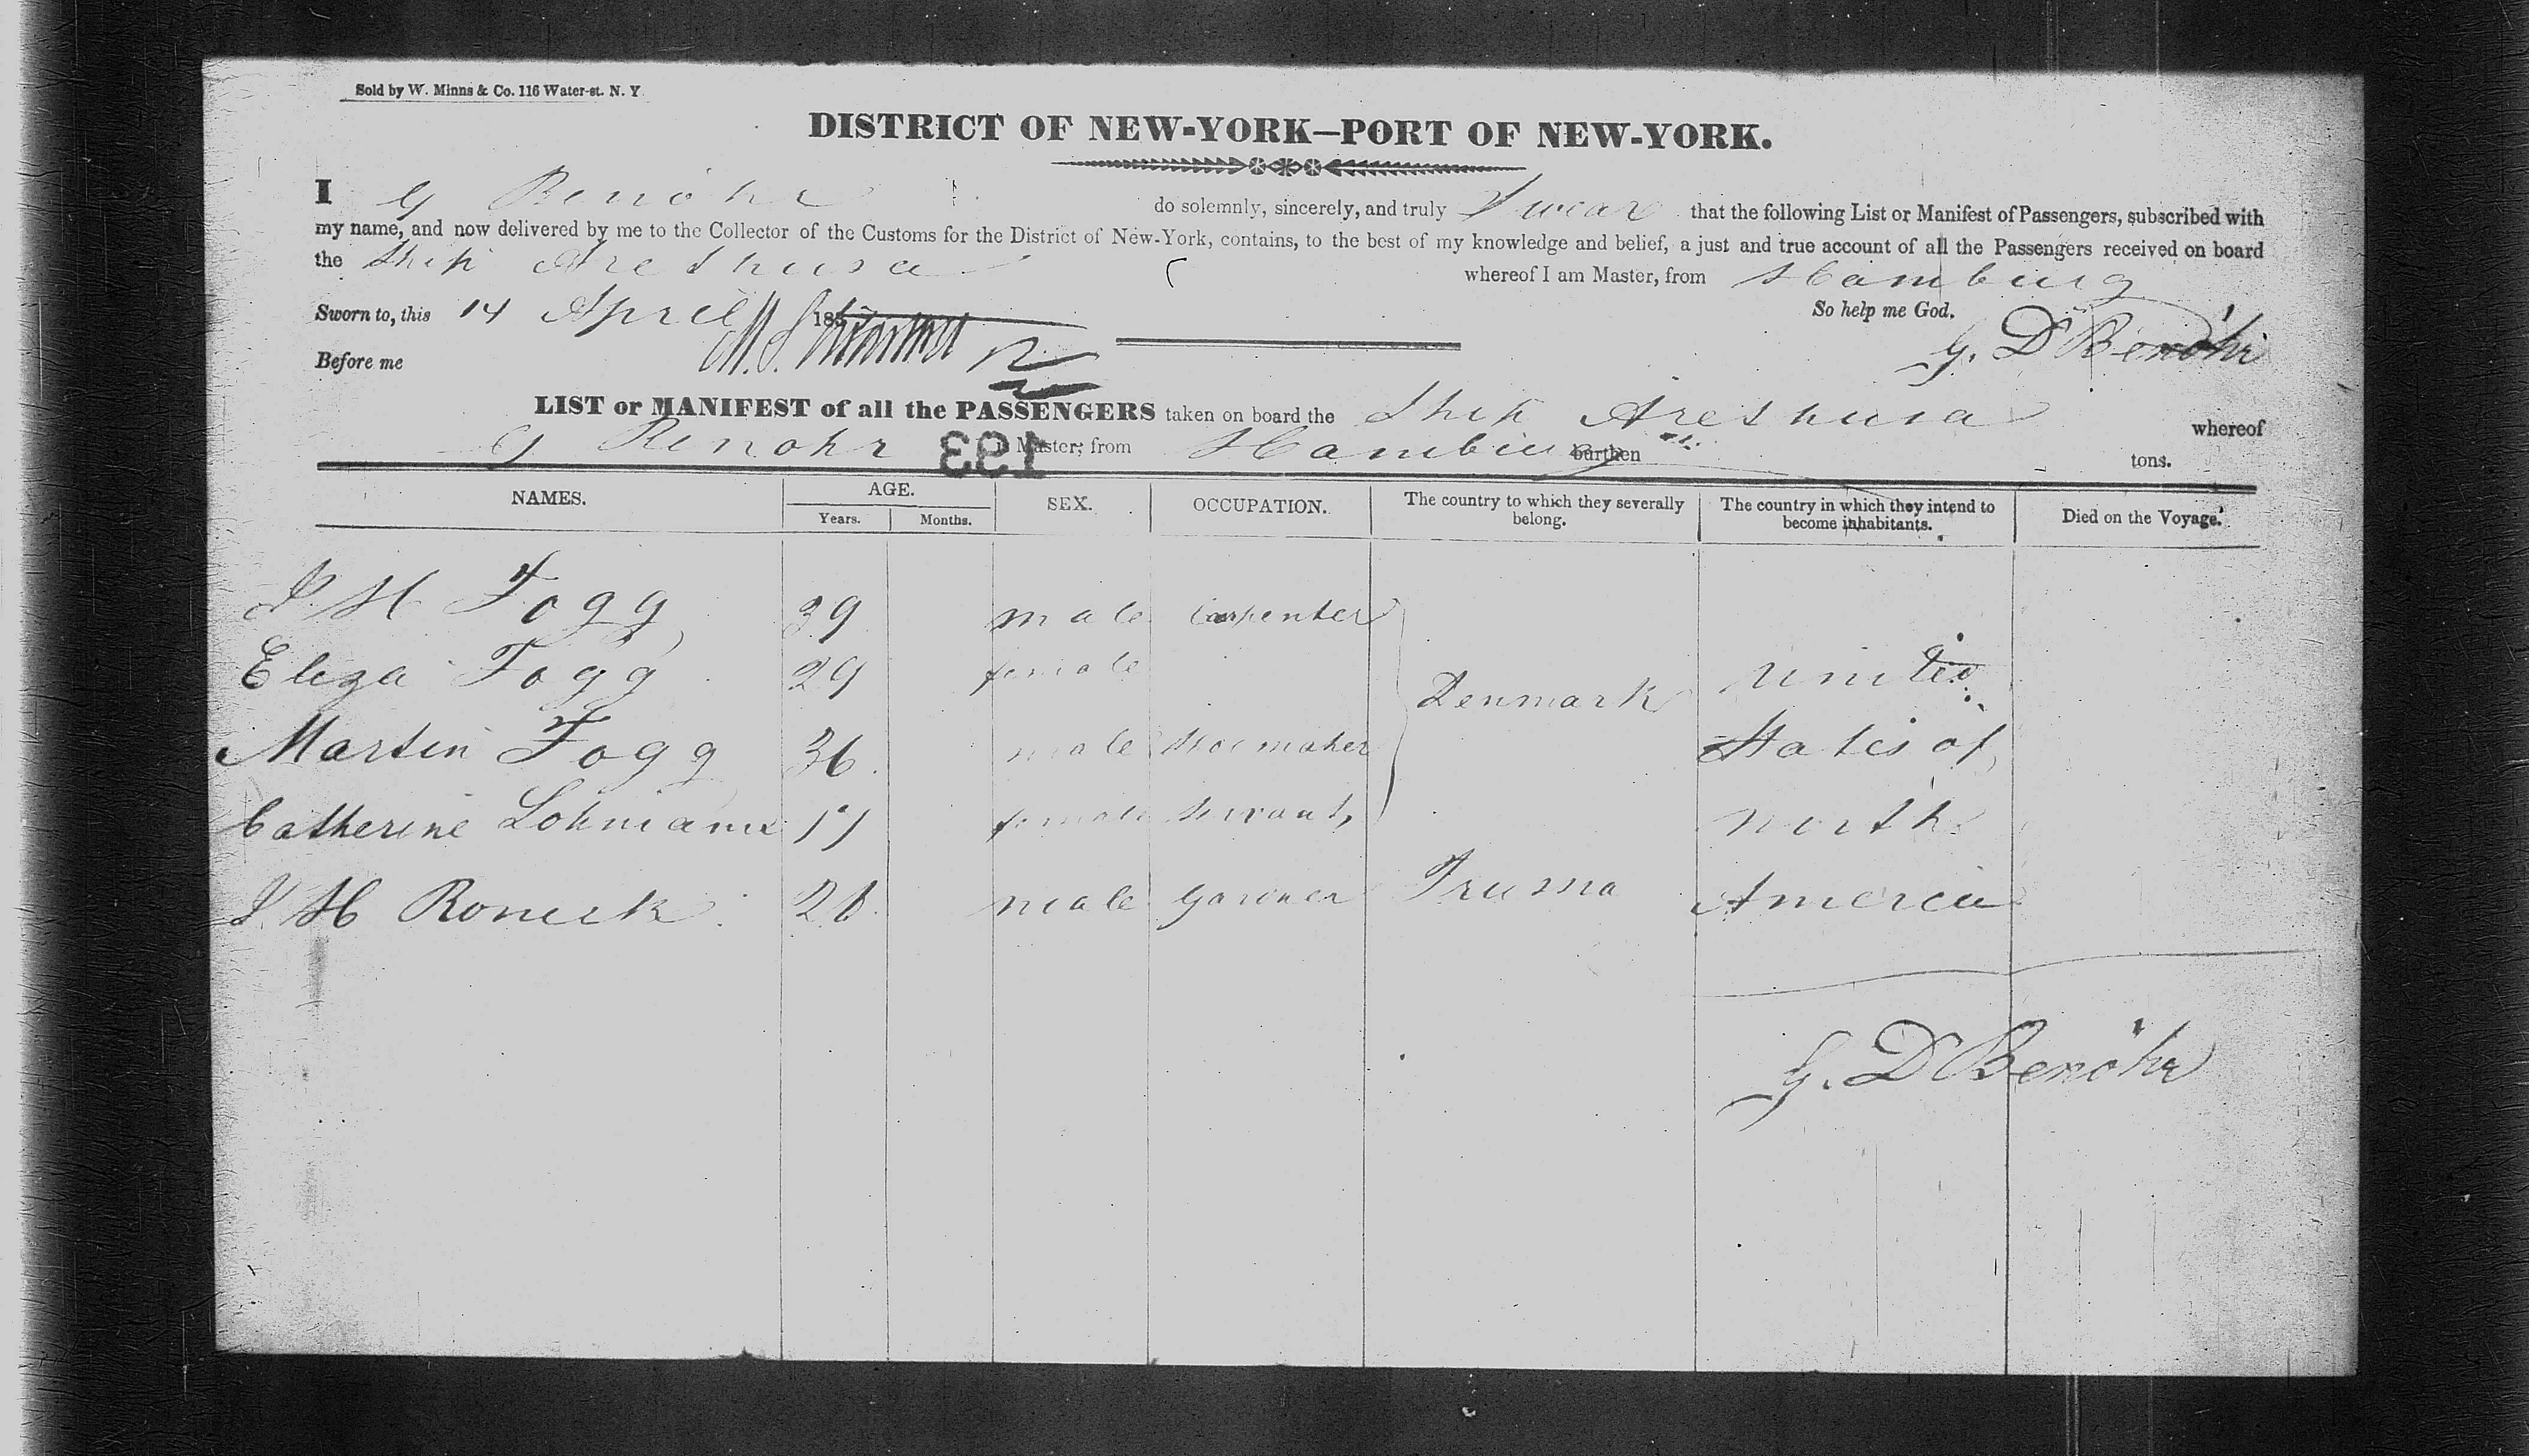 Sold by W. Minns & Co. 116 Water-st. N. Y
DISTRICT OF NEW-YORK—PORT OF NEW-YORK.
I G Benohr do solemnly, sincerely, and truly Swear that the following List or Manifest of Passengers, subscribed with
my name, and now delivered by me to the Collector of the Customs for the District of New-York, contains, to the best of my knowledge and belief, a just and true account of all the Passengers received on board
the Ship Arethusa whereof I am Master, from Hamburg
Sworn to, this 14 April 185 So help me God.
Before me G. D Benöhr
LIST or MANIFEST of all the PASSENGERS taken on board the Ship Arethusa whereof
G Benohr 193 Master, from Hamburg burthen tons.
NAMES. AGE. SEX. OCCUPATION. The country to which they severally belong. The country in which they intend to become inhabitants. Died on the Voyage.
Years. Months.
J H Fogg 39 male Carpenter
Eliza Fogg 29 female Denmark United
Martin Fogg 36 male Shoemaker States of
Catherine Lohmann 17 female Servant north
J H Roneck 28 male Gardner Prussia America
G. D Benöhr